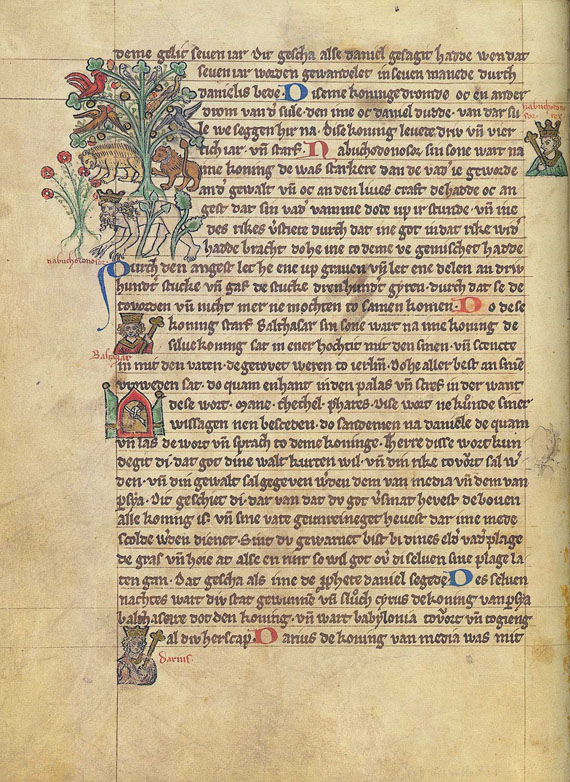 deme gelit seven iar. Dit gescha alse daniel gesagit hadde wen dat
seven iar worden gewandelet in seven manede durch
danielis bede. Diseme koninge dromde oc en ander
drom van d' sule. den ime oc daniel dudde. van dar su
le we seggen hir na. Dise koning levete driv vn̄ vier
tich iar. vn̄ starf. Nabuchodonosor sin sone wart na
nabuchodonosor rex
ime koning de was starkere dan de vad' ie geworde
an d' gewalt vn̄ oc an den lives craft de hadde oc an
gest dat sin vad' vamme dode up ir stunde. vn̄ ime
des rikes durch dat ime got in dat rike wid'
hadde bracht do he ine to deme ve gemischet hadde
nabuchodonosor
Durch den angest let he ene up graven vn̄ let ene delen an driv
hundt stucke vn̄ gaf de stucke dren hundt gyren. durch dat se de
tovorden vn̄ nicht mer ne mochten to samen komen. Do dese
koning starf Balthasar sin sone wart na ime koning. de
Baltazar
selve koning sat in ener hochtit mit den sinen. vn̄ scencte
in mit den vaten. de gerovet weren to ierl'm. Do he aller best an sine
vroweden sat. do quam en hant in den palas vn̄ scref in der want
dese wort. Mane. thechel. phares. Dise wort ne kunde siner
wissagen nen besceden. do sandemen na daniele de quam
vn̄ las de wort vn̄ sprach to deme koninge. Herre disse wort kun
degit di. dat got dine walt kurten wil. vn̄ din rike tovort sal w'
den. vn̄ din gewalt sal gegeven w'den dem van media vn̄ dem van
p'sya. Dit geschiet di. dar van dat du got v'smat hevest de boven
alle koning is. vn̄ sine vate geunreineget hevest dar ime mede
scolde w'den dienet. Sint du gewarnet bist bi dines eld' vad' plage
de gras vn̄ hoie at alse en rint so wil got ov' di selven sine plage la
ten gan. Dat gescha als ime de p'phete daniel segede. Des selven
nachtes wart div stat gewunne vn̄ sluch cyrus de koning van p'sya
balthasere dot den koning. vn̄ wart babylonia tovort vn̄ togieng
al div herscap. Darius de koning van media was mit
darius.